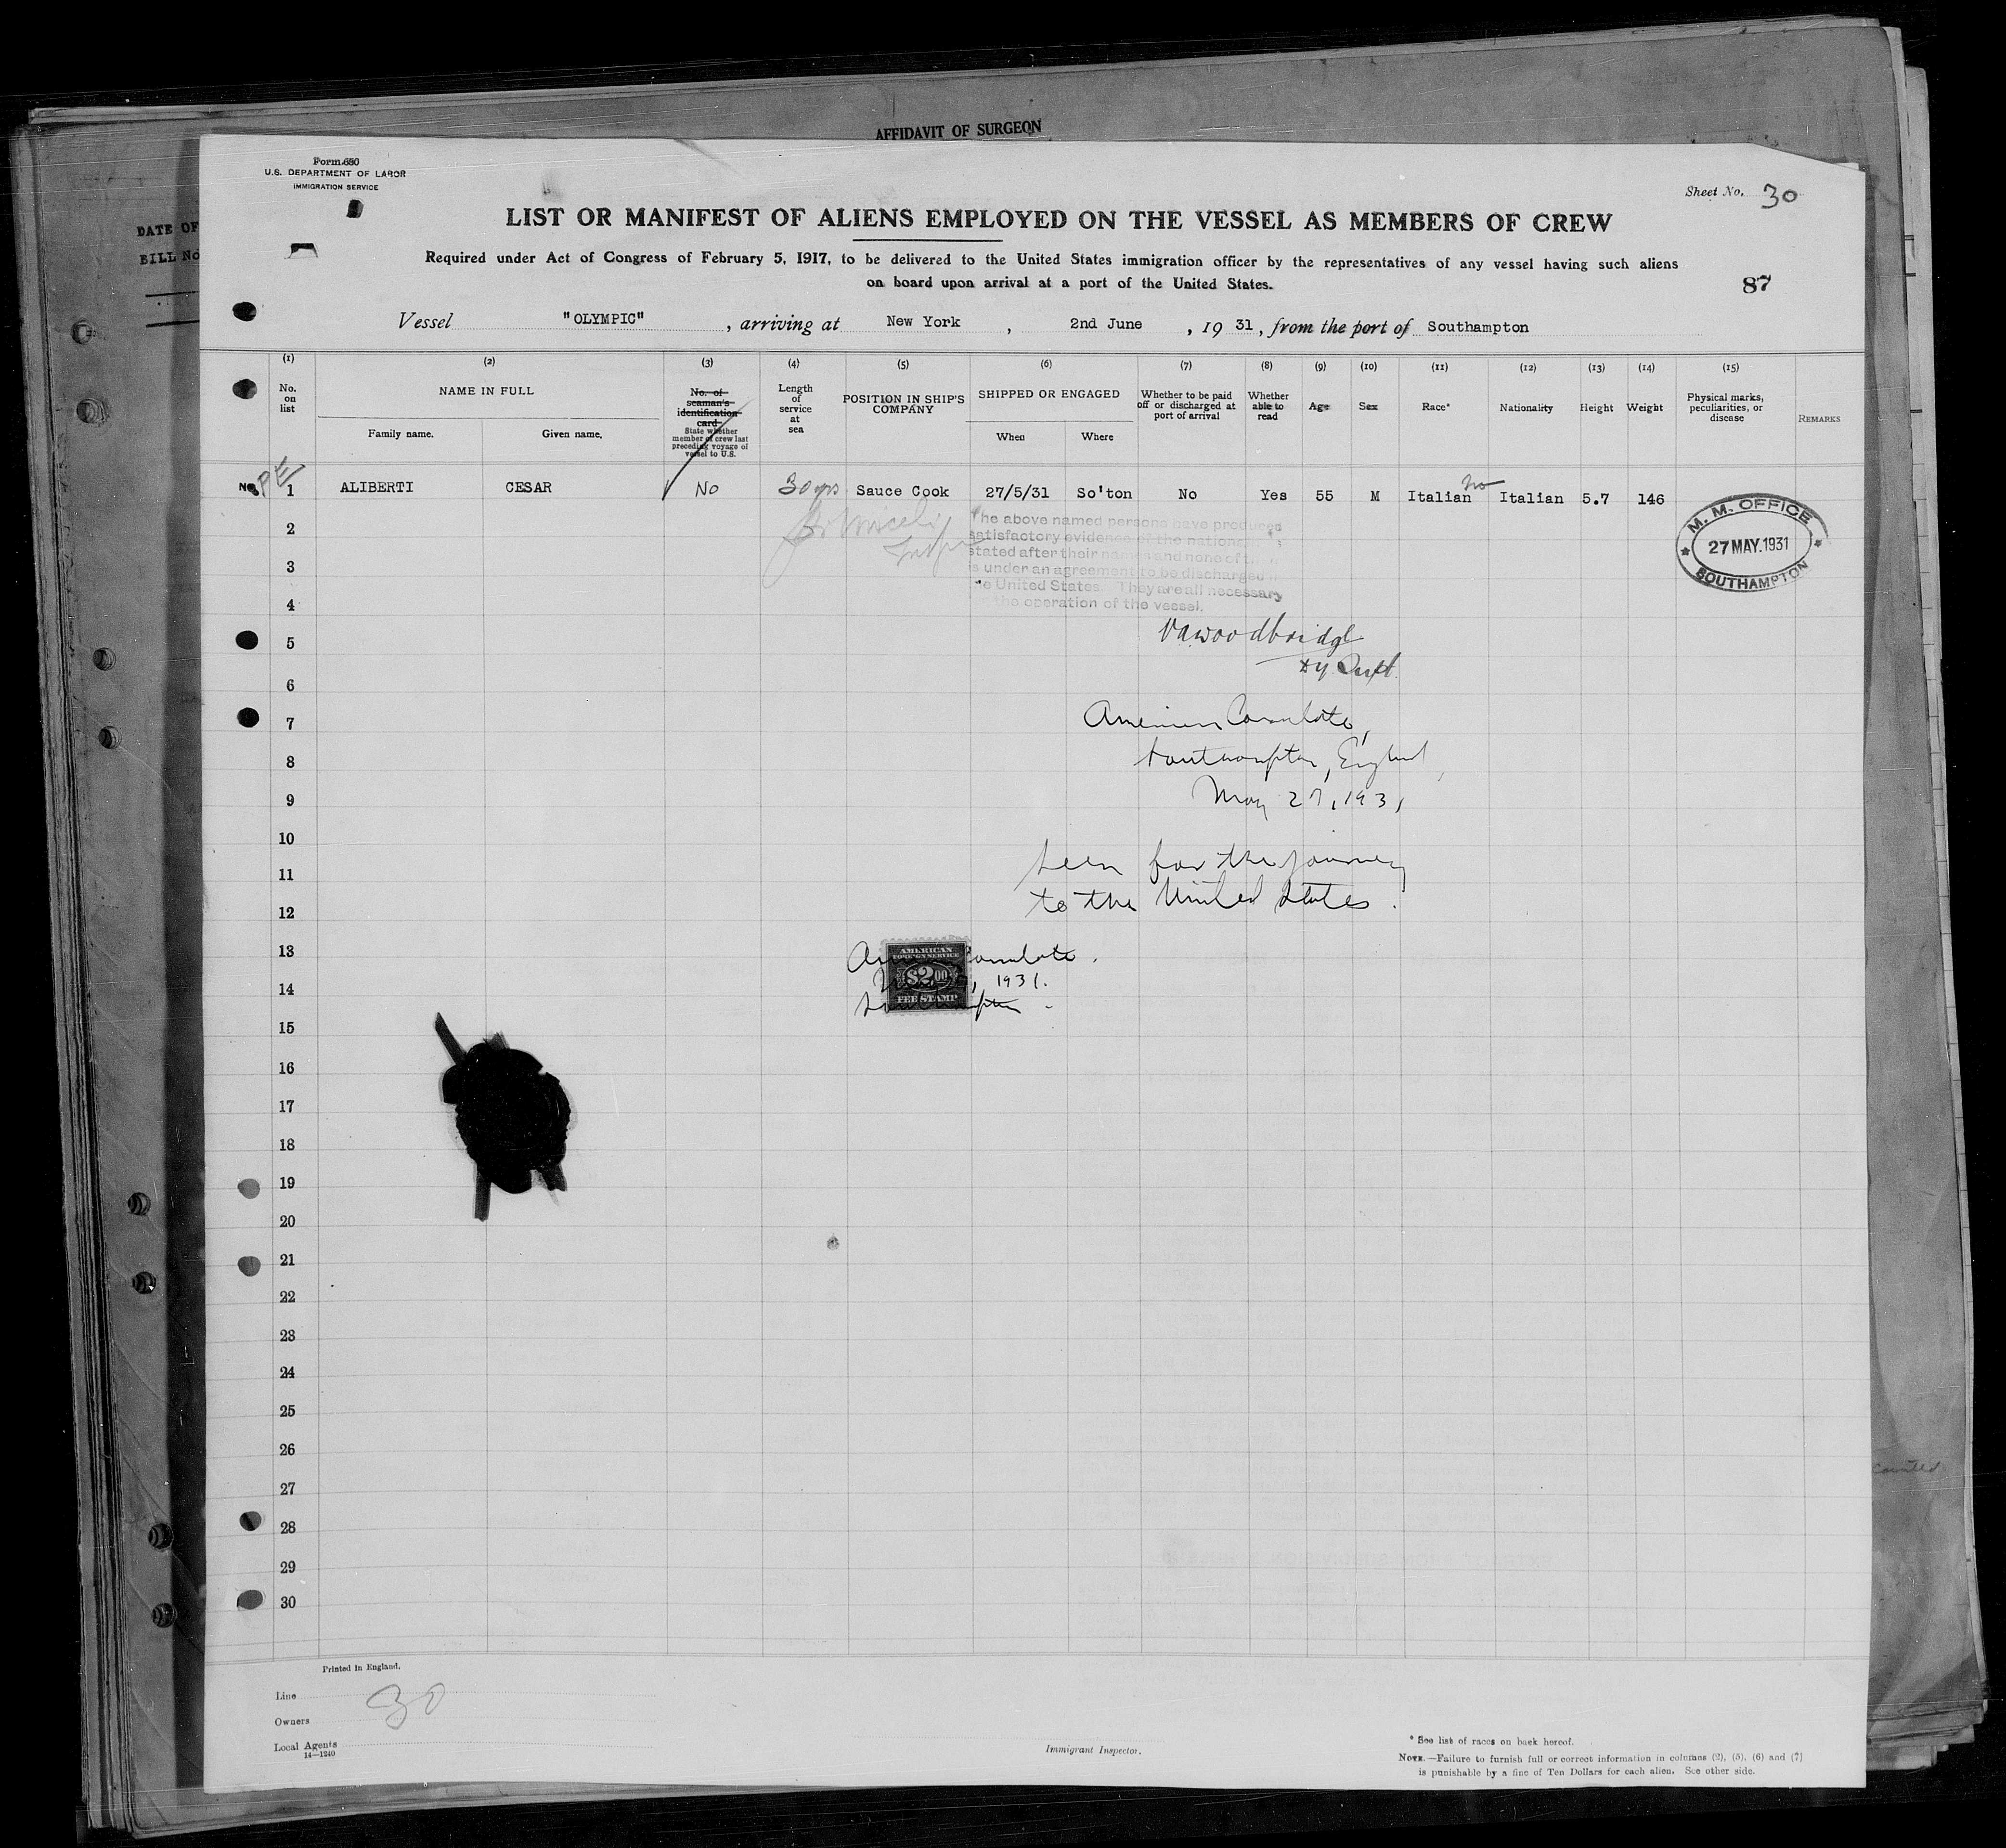 AFFIDAVIT OF SURGEON
DATE OF
BILL No
Form 680
U.S. DEPARTMENT OF LABOR
IMMIGRATION SERVICE
Sheet No. 30
LIST OR MANIFEST OF ALIENS EMPLOYED ON THE VESSEL AS MEMBERS OF CREW
Required under Act of Congress of February 5, 1917, to be delivered to the United States immigration officer by the representatives of any vessel having such aliens
on board upon arrival at a port of the United States.
87
Vessel "OLYMPIC", arriving at New York, 2nd June, 19 31, from the port of Southampton
(1) (2) (3) (4) (5) (6) (7) (8) (9) (10) (11) (12) (13) (14) (15)
No. on list
NAME IN FULL
Family name. Given name.
No. of seaman's identification card
State whether member of crew last preceding voyage of vessel to U.S.
Length of service at sea
POSITION IN SHIP'S COMPANY
SHIPPED OR ENGAGED
When Where
Whether to be paid off or discharged at port of arrival
Whether able to read
Age
Sex
Race*
Nationality
Height
Weight
Physical marks, peculiarities, or disease
REMARKS
PE
No. 1 ALIBERTI CESAR No 30 yrs Sauce Cook 27/5/31 So'ton No Yes 55 M Italian No Italian 5.7 146
M. M. OFFICE
27 MAY. 1931
SOUTHAMPTON
The above named persons have produced
satisfactory evidence of the
stated after their names and none of
is under an agreement to be discharged
United States. They are all necessary
the operation of the vessel.
2
3
4
5
6
7
8
9
10
11
12
13
14
15
16
17
18
19
20
21
22
23
24
25
26
27
28
29
30
VaWoodbridge
American Consulate,
Southampton, England,
May 27, 1931
Seen for the journey
to the United States.
AMERICAN
FOREIGN SERVICE
$2.00
FEE STAMP
Consulate.
1931.
Southampton
Printed in England.
Line
30
Owners
Local Agents
14—1240
Immigrant Inspector.
* See list of races on back hereof.
NOTE.—Failure to furnish full or correct information in columns (2), (5), (6) and (7)
is punishable by a fine of Ten Dollars for each alien. See other side.